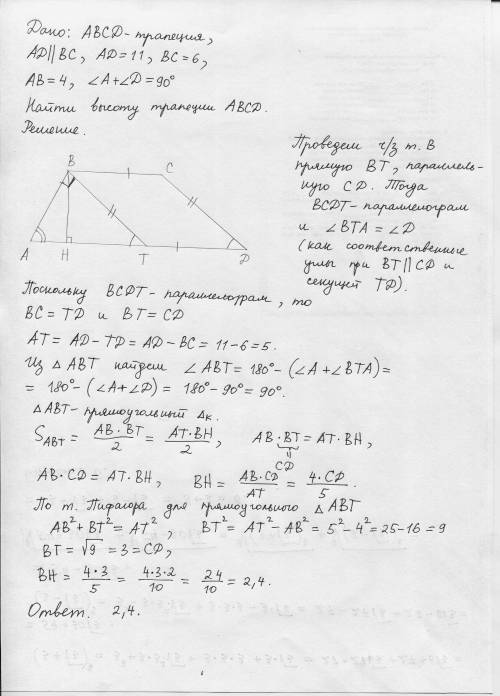 Дано: ABCD-трапеция,
AD||BC, AD=11, BC=6,
AB=4, ∠A+∠D=90°
Найти высоту трапеции ABCD.
Решение.
Проведем ч/з т. В
прямую ВТ, параллель-
ную CD. Тогда
BCDT-параллелограм
и ∠BTA=∠D
(как соответственные
углы при BT||CD и
секущей TD).
B
C
A
H
T
D
Поскольку BCDT-параллелограм, то
BC=TD и BT=CD
AT=AD-TD=AD-BC=11-6=5.
Из △ABT найдем ∠ABT=180°-(∠A+∠BTA)=
=180°-(∠A+∠D)=180°-90°=90°.
△ABT-прямоугольный △к.
S_ABT = AB·BT/2 = AT·BH/2, AB·BT=AT·BH,
CD
AB·CD=AT·BH, BH = AB·CD/AT = 4·CD/5.
По т. Пифагора для прямоугольного △ABT
AB²+BT²=AT², BT²=AT²-AB²=5²-4²=25-16=9
BT=√9=3=CD,
BH = 4·3/5 = 4·3·2/10 = 24/10 = 2,4.
Ответ. 2,4.